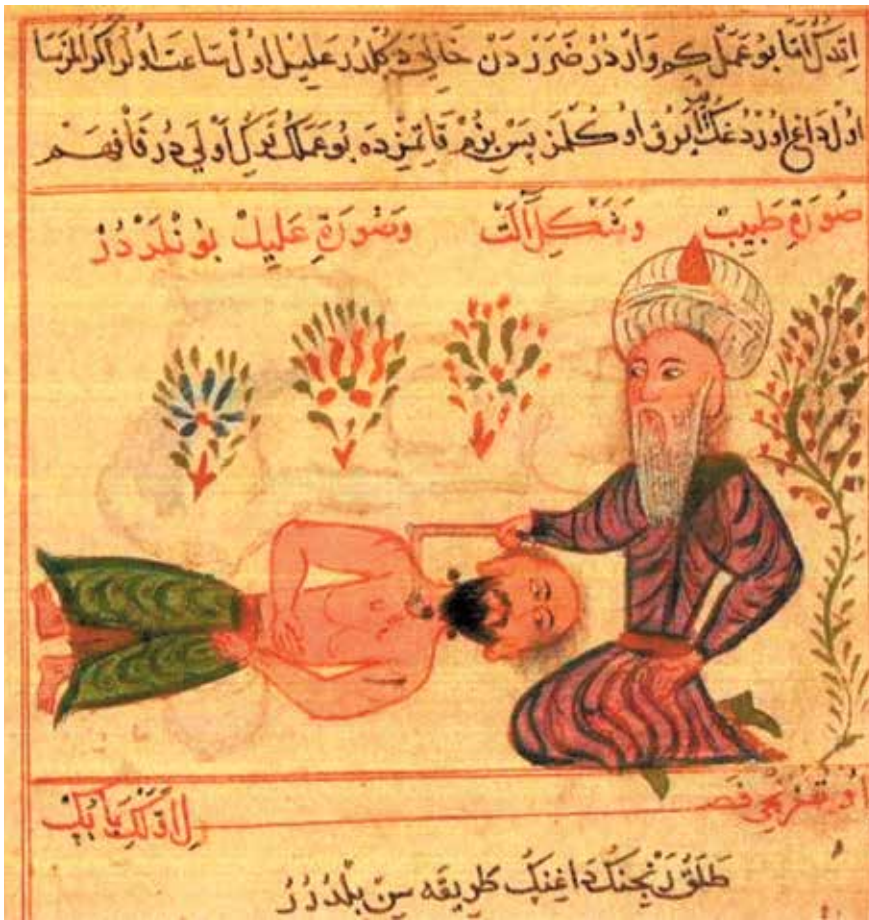 اتدك اما بو عمل كم واردر ضرردن خالي دكلدر عليل اول ساعت اولر اكر المزسا
اول داغ اوردغك ايرق اوكلمز پس بزم قاتمزده بو عملك تركي اولي در فافهم
صُورَةِ طَبِيبْ وَشَكْلِ آلَتْ وَصُورَةِ عَلِيلْ بُونْلَرْدُرْ
فصل اولكي بابك
طلق رنجنك داغنك طريقه سن بلدرر